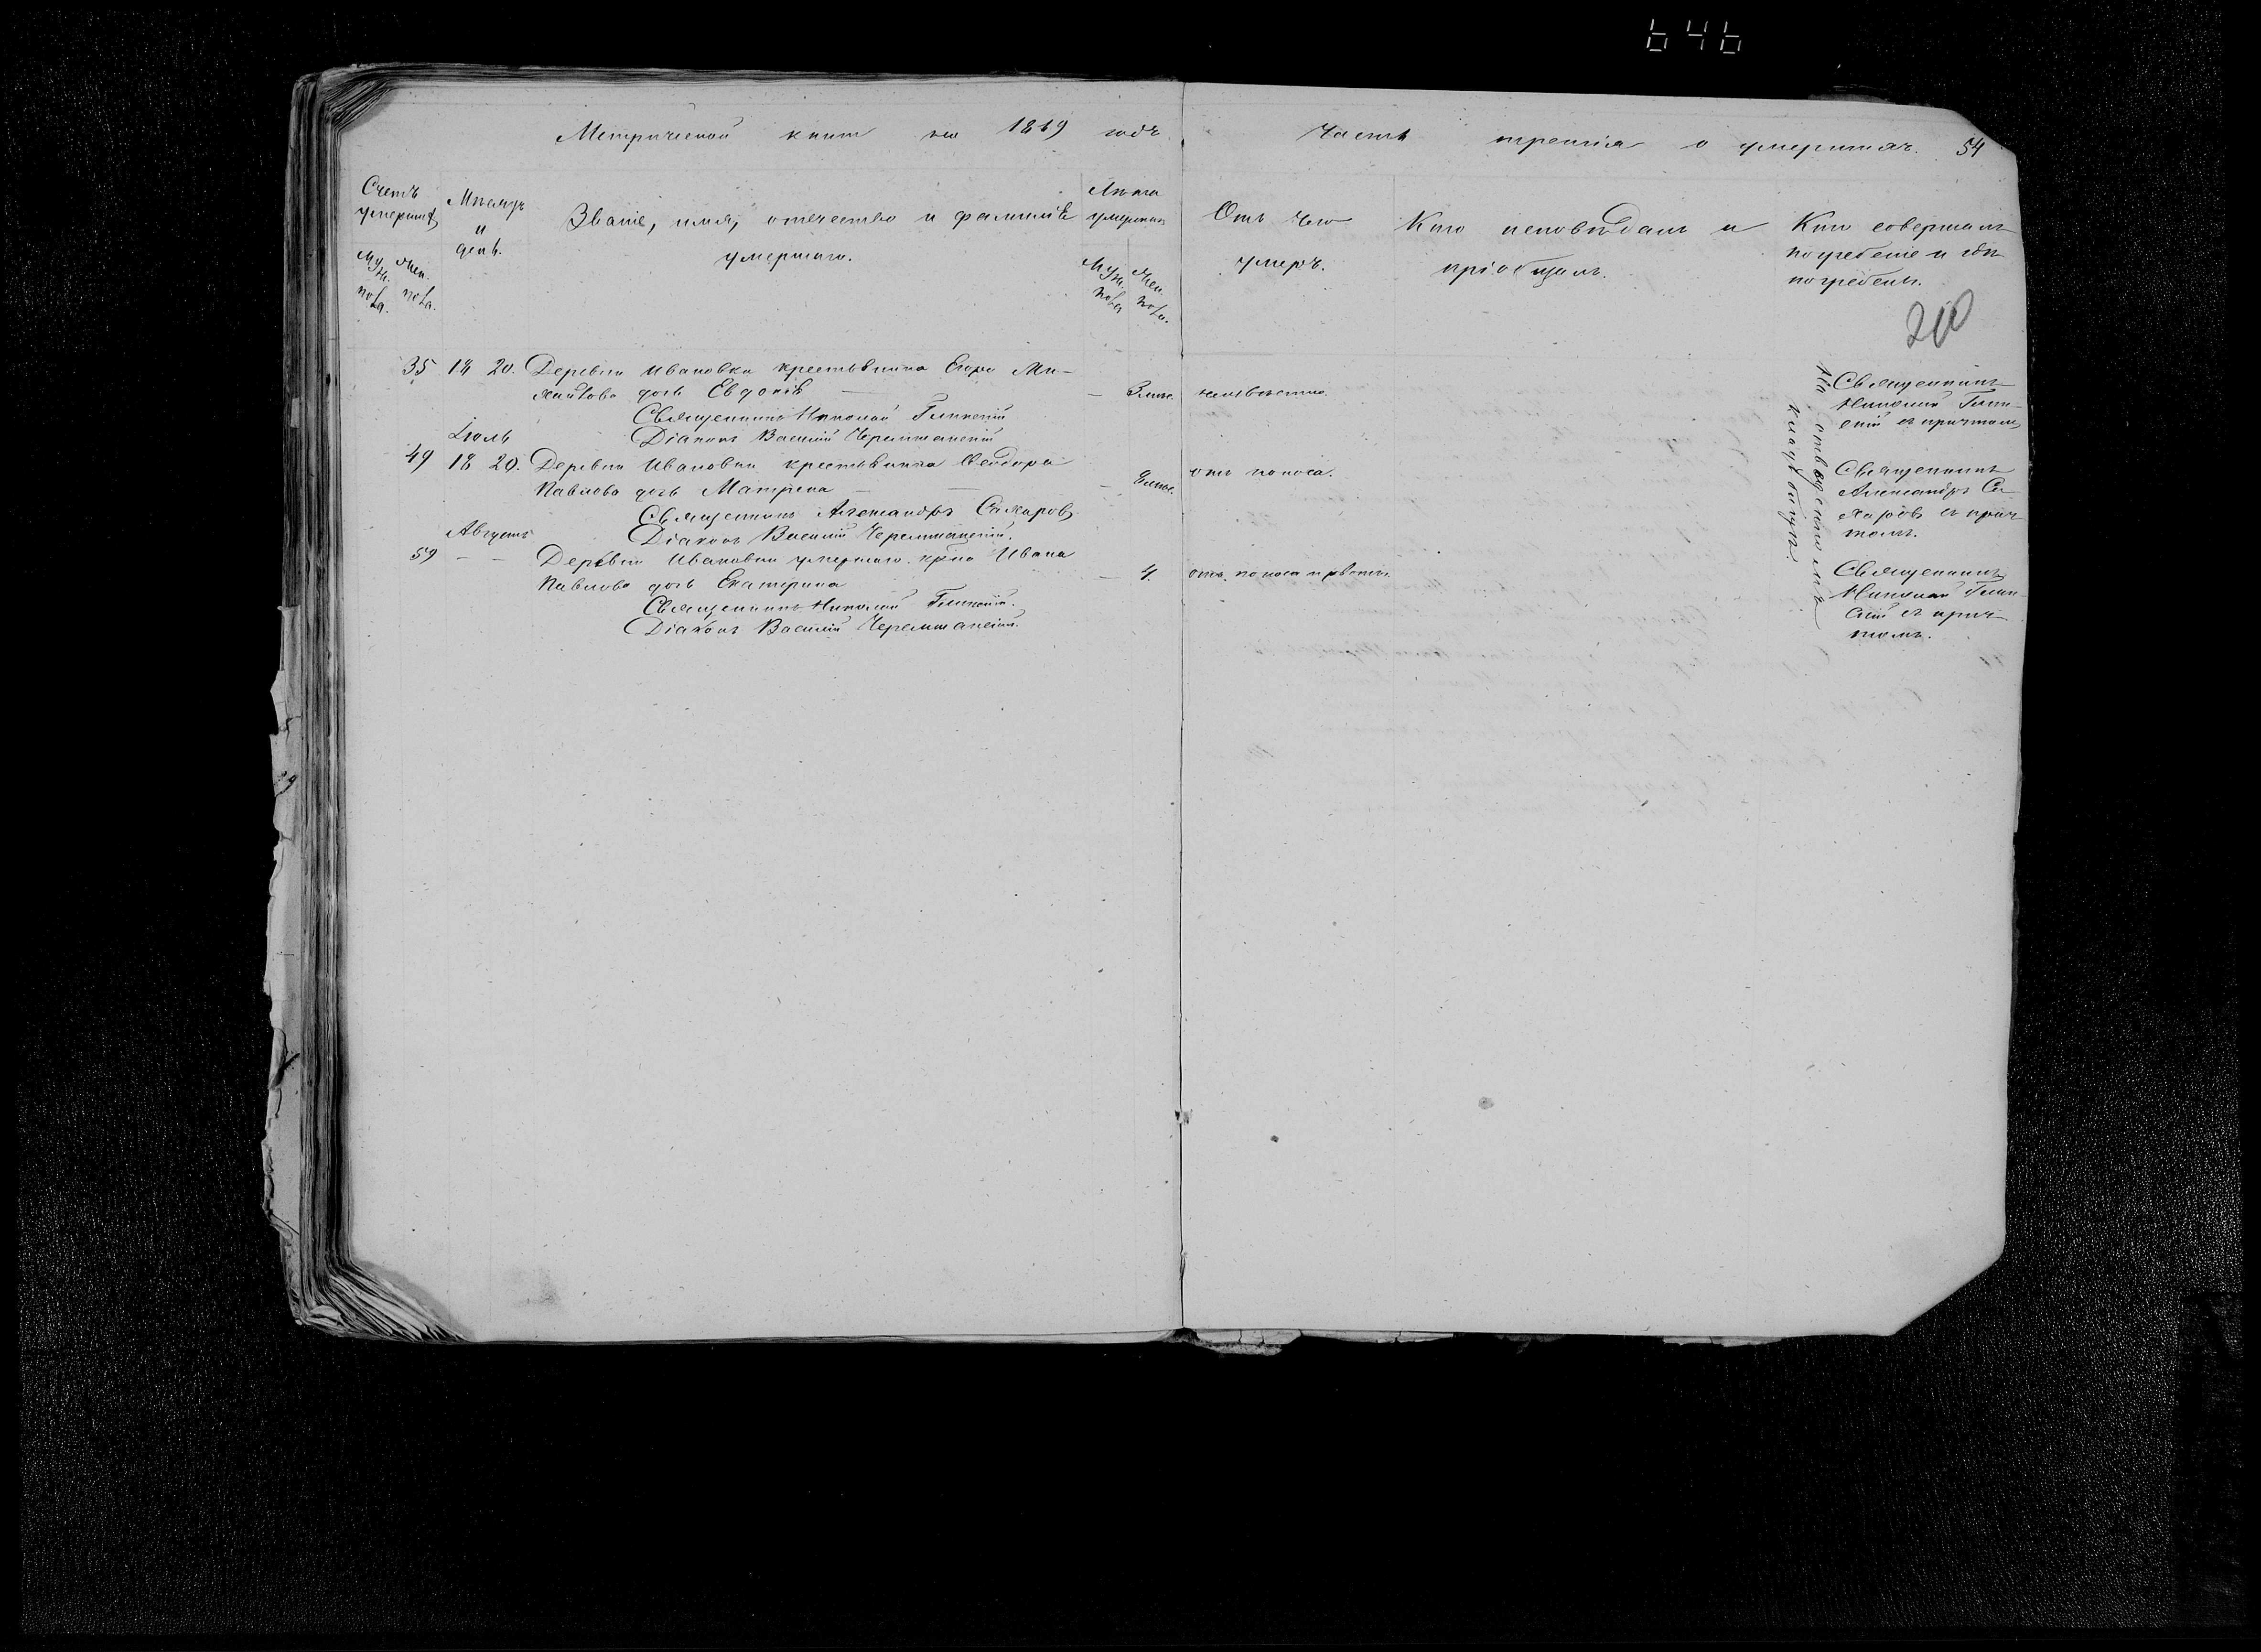 646
Метрической книги на 1869 годъ
Часть третія о умершихъ. 54
Счетъ умершихъ
Муж. пола.
Жен. пола.
Мѣсяцъ и день.
Званіе, имя, отечество и фамилія умершаго.
Лѣта умершаго
Муж. пола
Жен. пола.
Отъ чего умеръ.
Кто исповѣдалъ и пріобщалъ.
Кто совершалъ погребеніе и гдѣ погребенъ.
210
35 18 20. Деревни Ивановки крестьянина Егора Ми-
хайлова дочь Евдокія — — 3 мѣс. неизвѣстно.
Священникъ Николай
Діаконъ Василій Черемшанскій
Священникъ
Николай
скій съ причтомъ
Іюль
49 18 20. Деревни Ивановки крестьянина Ѳеодора
Павлова дочь Матрена — — мѣс. отъ поноса.
Священникъ Александръ Сахаровъ
Діаконъ Василій Черемшанскій.
Священникъ
Александръ Са-
харовъ съ прич-
томъ.
Августъ
59 — — Деревни Ивановки умершаго кр-на Ивана
Павлова дочь Екатерина — 4. отъ поноса и рвоты.
Священникъ Николай
Діаконъ Василій Черемшанскій.
Священникъ
Николай
скій съ прич-
томъ.
На отведенномъ
кладбищѣ.